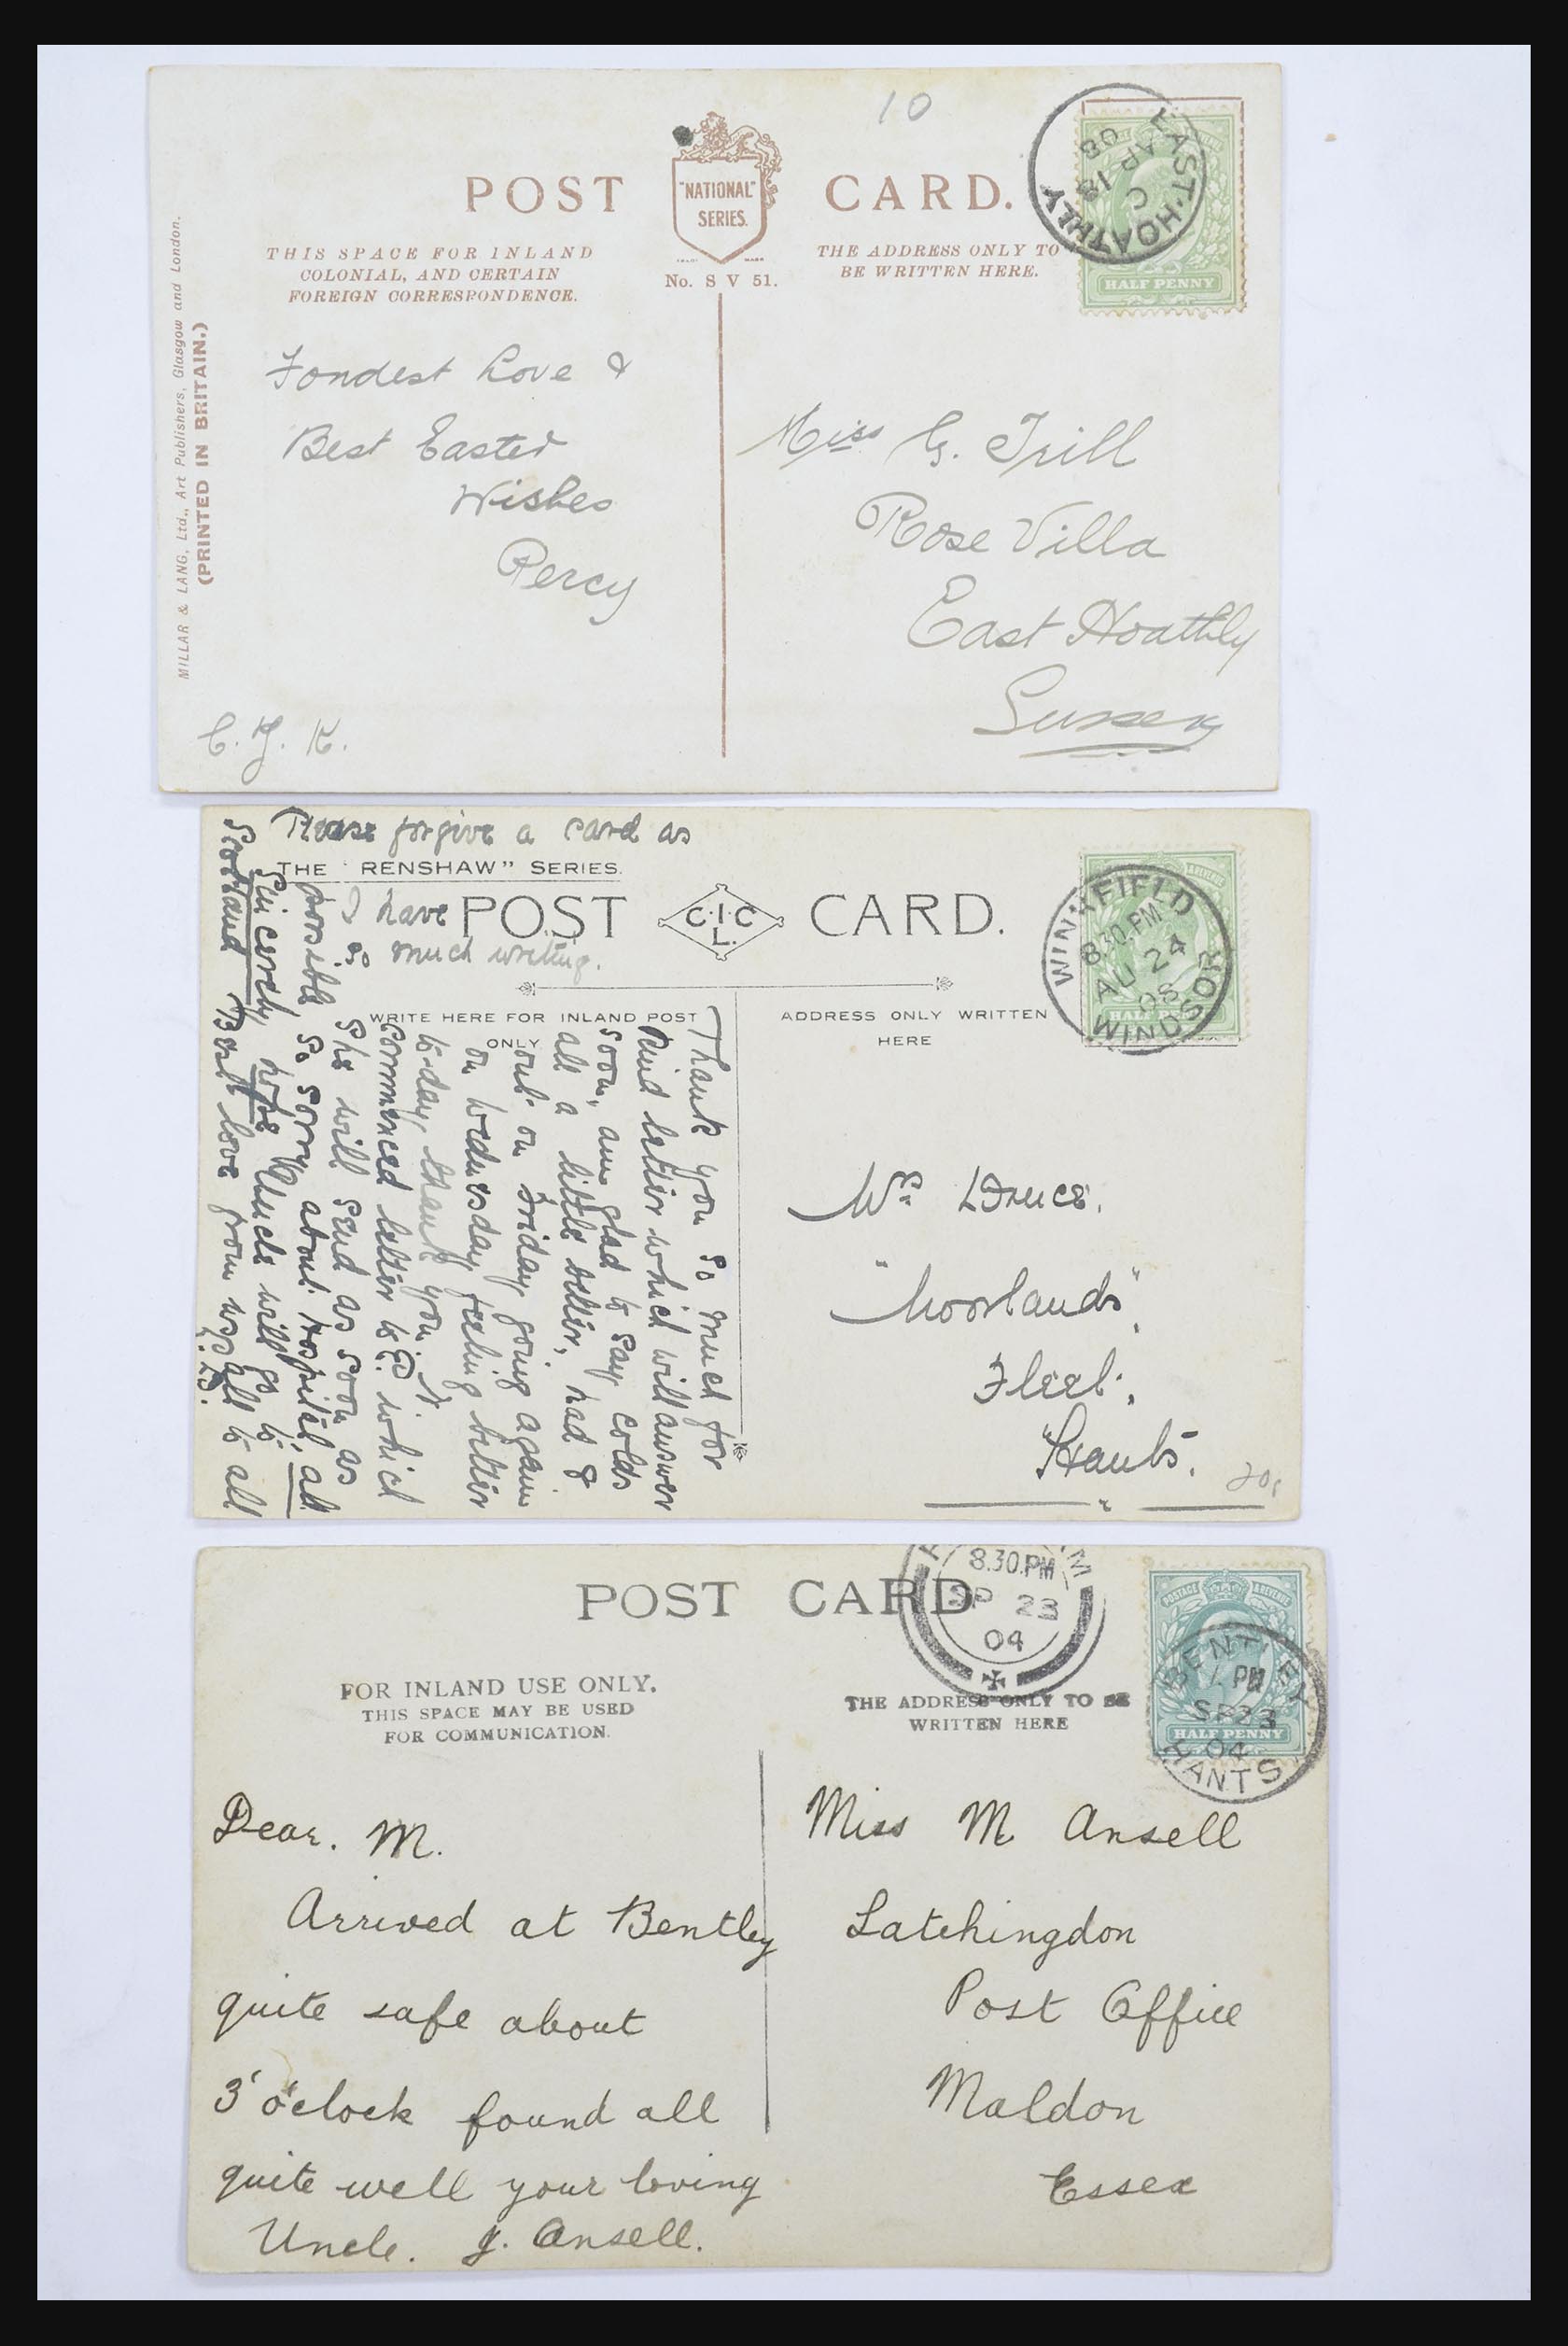 10
POST CARD.
"NATIONAL"
SERIES.
No. S V 51.
THIS SPACE FOR INLAND
COLONIAL, AND CERTAIN
FOREIGN CORRESPONDENCE.
THE ADDRESS ONLY TO
BE WRITTEN HERE.
EAST HOATHLY
C
AP 18
08
HALF PENNY
MILLAR & LANG, Ltd., Art Publishers, Glasgow and London.
(PRINTED IN BRITAIN.)
Fondest Love &
Best Easter
Wishes
Percy
C. J. K.
Miss G. Trill
Rose Villa
East Hoathly
Sussex
Please forgive a card as
I have
so much writing.
THE "RENSHAW" SERIES.
POST CARD.
C.I.C
L.
WRITE HERE FOR INLAND POST
ONLY.
ADDRESS ONLY WRITTEN
HERE
WINKFIELD
8.30.PM
AU 24
08
WINDSOR
Thank you so much for
kind letter which will answer
soon, am glad to say colds
all a little better, had &
out on Friday going again
on Wednesday feeling better
to-day, thank you.
commenced letter to which
she will send as soon as
possible So sorry about Hospital, ad
Sincerely hope Uncle will go to
Scotland Best love from us all to all
Druce.
"Moorlands",
Fleet,
Hants.
POST CARD
8.30.PM
SP 23
04
FOR INLAND USE ONLY.
THIS SPACE MAY BE USED
FOR COMMUNICATION.
THE ADDRESS ONLY TO BE
WRITTEN HERE
POSTAGE & REVENUE
HALF PENNY
BENTLEY
PM
SP 23
04
HANTS
Dear. M.
Arrived at Bentley
quite safe about
3 o'clock found all
quite well your loving
Uncle. J. Ansell.
Miss M Ansell
Latchingdon
Post Office
Maldon
Essex